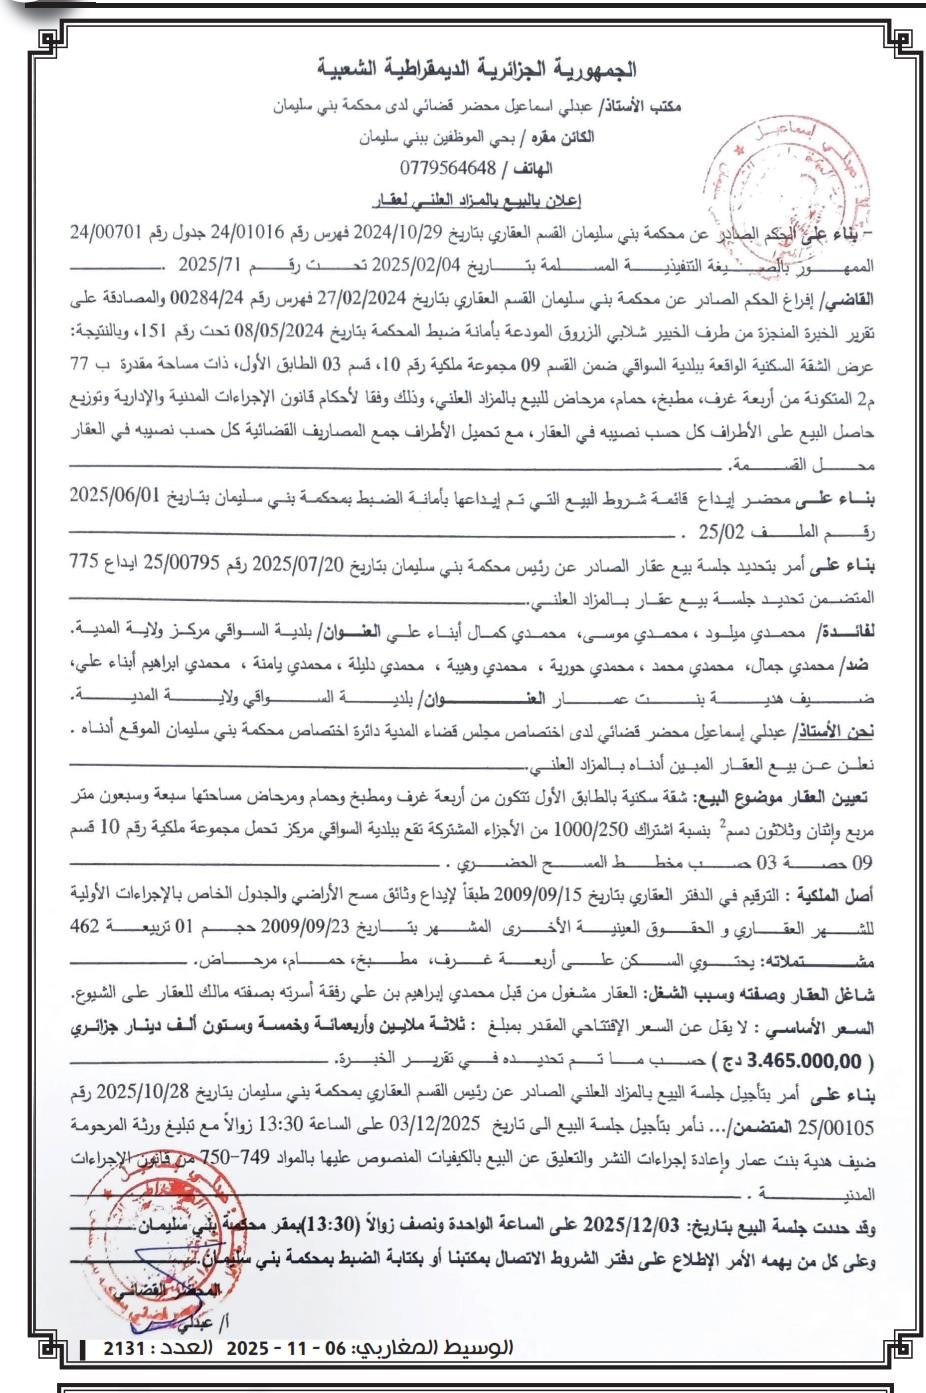 الجمهورية الجزائرية الديمقراطية الشعبية
مكتب الأستاذ/ عبدلي اسماعيل محضر قضائي لدى محكمة بني سليمان
الكائن مقره / بحي الموظفين ببني سليمان
الهاتف / 0779564648
إعلان بالبيع بالمزاد العلني لعقار
– بناء على الحكم الصادر عن محكمة بني سليمان القسم العقاري بتاريخ 2024/10/29 فهرس رقم 24/01016 جدول رقم 24/00701
الممهور بالصيغة التنفيذية المسلمة بتاريخ 2025/02/04 تحت رقم 2025/71 .
القاضي/ إفراغ الحكم الصادر عن محكمة بني سليمان القسم العقاري بتاريخ 27/02/2024 فهرس رقم 00284/24 والمصادقة على
تقرير الخبرة المنجزة من طرف الخبير شلابي الزروق المودعة بأمانة ضبط المحكمة بتاريخ 08/05/2024 تحت رقم 151، وبالنتيجة:
عرض الشقة السكنية الواقعة ببلدية السواقي ضمن القسم 09 مجموعة ملكية رقم 10، قسم 03 الطابق الأول، ذات مساحة مقدرة ب 77
م2 المتكونة من أربعة غرف، مطبخ، حمام، مرحاض للبيع بالمزاد العلني، وذلك وفقا لأحكام قانون الإجراءات المدنية والإدارية وتوزيع
حاصل البيع على الأطراف كل حسب نصيبه في العقار، مع تحميل الأطراف جمع المصاريف القضائية كل حسب نصيبه في العقار
محل القسمة.
بناء على محضر إيداع قائمة شروط البيع التي تم إيداعها بأمانة الضبط بمحكمة بني سليمان بتاريخ 2025/06/01
رقم الملف 25/02 .
بناء على أمر بتحديد جلسة بيع عقار الصادر عن رئيس محكمة بني سليمان بتاريخ 2025/07/20 رقم 25/00795 ايداع 775
المتضمن تحديد جلسة بيع عقار بالمزاد العلني.
لفائدة/ محمدي ميلود ، محمدي موسى، محمدي كمال أبناء علي العنوان/ بلدية السواقي مركز ولاية المدية.
ضد/ محمدي جمال، محمدي محمد ، محمدي حورية ، محمدي وهيبة ، محمدي دليلة ، محمدي يامنة ، محمدي ابراهيم أبناء علي،
ضيف هدية بنت عمار العنوان/ بلدية السواقي ولاية المدية.
نحن الأستاذ/ عبدلي إسماعيل محضر قضائي لدى اختصاص مجلس قضاء المدية دائرة اختصاص محكمة بني سليمان الموقع أدناه .
نعلن عن بيع العقار المبين أدناه بالمزاد العلني.
تعيين العقار موضوع البيع: شقة سكنية بالطابق الأول تتكون من أربعة غرف ومطبخ وحمام ومرحاض مساحتها سبعة وسبعون متر
مربع واثنان وثلاثون دسم2 بنسبة اشتراك 1000/250 من الأجزاء المشتركة تقع ببلدية السواقي مركز تحمل مجموعة ملكية رقم 10 قسم
09 حصة 03 حسب مخطط المسح الحضري .
أصل الملكية : الترقيم في الدفتر العقاري بتاريخ 2009/09/15 طبقاً لإيداع وثائق مسح الأراضي والجدول الخاص بالإجراءات الأولية
للشهر العقاري و الحقوق العينية الأخرى المشهر بتاريخ 2009/09/23 حجم 01 تربيعة 462
مشتملاته: يحتوي السكن على أربعة غرف، مطبخ، حمام، مرحاض.
شاغل العقار وصفته وسبب الشغل: العقار مشغول من قبل محمدي إبراهيم بن علي رفقة أسرته بصفته مالك للعقار على الشيوع.
السعر الأساسي : لا يقل عن السعر الإفتتاحي المقدر بمبلغ : ثلاثة ملايين وأربعمائة وخمسة وستون ألف دينار جزائري
( 3.465.000,00 دج ) حسب ما تم تحديده في تقرير الخبرة.
بناء على أمر بتأجيل جلسة البيع بالمزاد العلني الصادر عن رئيس القسم العقاري بمحكمة بني سليمان بتاريخ 2025/10/28 رقم
25/00105 المتضمن/... نأمر بتأجيل جلسة البيع الى تاريخ 03/12/2025 على الساعة 13:30 زوالاً مع تبليغ ورثة المرحومة
ضيف هدية بنت عمار وإعادة إجراءات النشر والتعليق عن البيع بالكيفيات المنصوص عليها بالمواد 749-750 من قانون الإجراءات
المدنية .
وقد حددت جلسة البيع بتاريخ: 2025/12/03 على الساعة الواحدة ونصف زوالاً (13:30)بمقر محكمة بني سليمان
وعلى كل من يهمه الأمر الإطلاع على دفتر الشروط الاتصال بمكتبنا أو بكتابة الضبط بمحكمة بني سليمان.
المحضر القضائي
أ/ عبدلي
الوسيط المغاربي: 06 - 11 - 2025 العدد : 2131